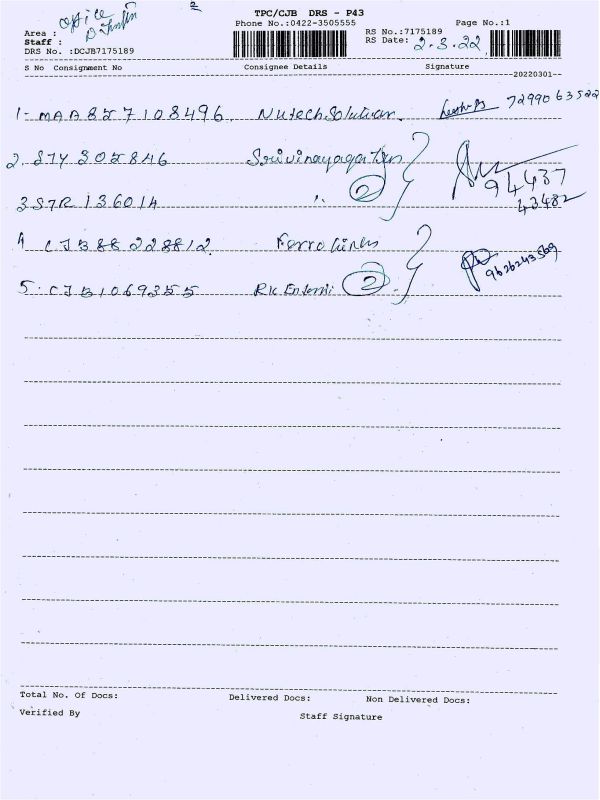 TPC/CJB DRS - P43
Phone No.:0422-3505555
Page No.:1
Area : office
Staff :
DRS No. :DCJB7175189
RS No.:7175189
RS Date: 2-3-22
S No Consignment No Consignee Details Signature
20220301
1- MAA857108496 Nutech Solution 7299063522
2. STY 305846 Srivinayaga
3 STR 136014 " (2) 94437
43482
4 CJB88228812 Ferro liners 9626243569
5. CJB1069355 RK Enterri (2)
Total No. Of Docs: Delivered Docs: Non Delivered Docs:
Verified By Staff Signature